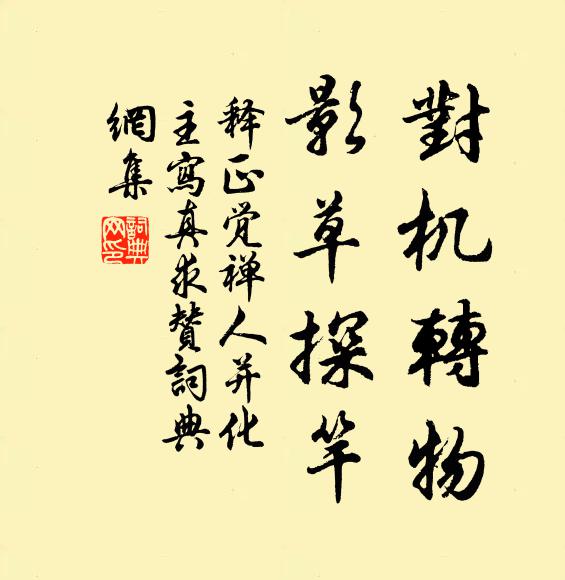 對机轉物
影草探竿
释正觉禅人并化
主寫真求贊詞典
網集
詞典網印